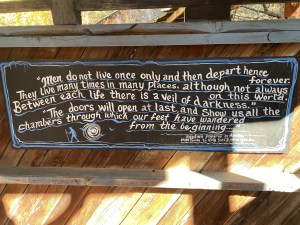 "Men do not live once only and then depart hence forever.
They live many times in many places, although not always on this World.
Between each life there is a veil of darkness."
"The doors will open at last and Show us all the
chambers through which our feet have wandered
from the beginning...